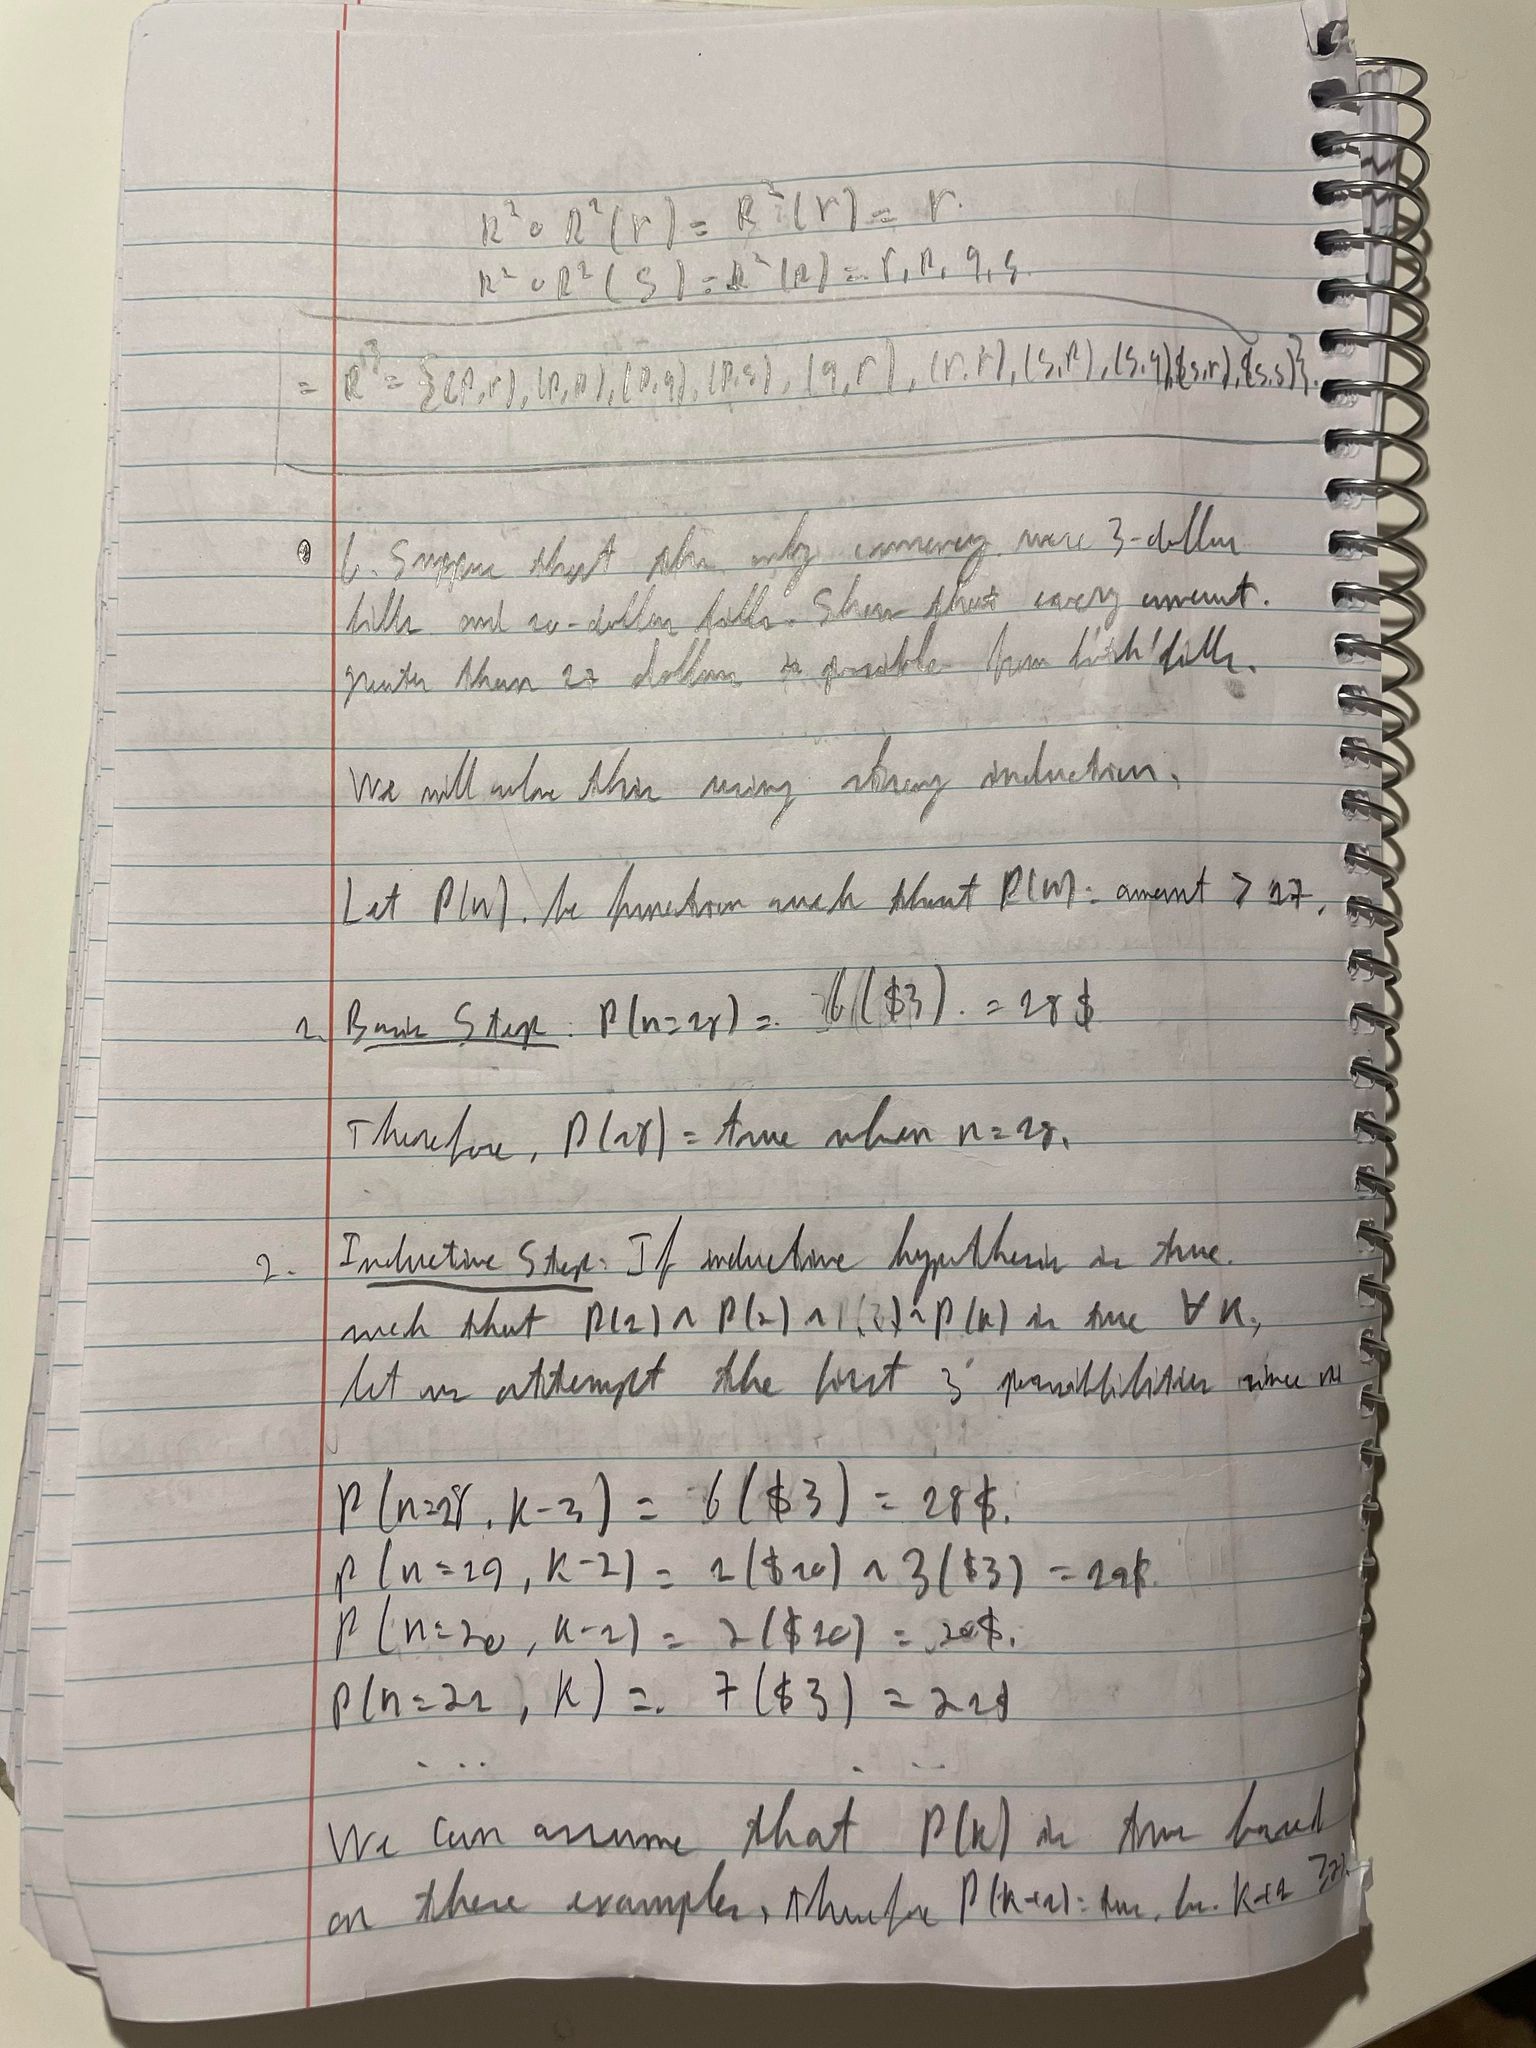 R² ∘ R²(r) = R²(r) = r.
R² ∘ R²(s) = R²(p) = r, p, q, s.
= R³ = {(p,r), (p,p), (p,q), (p,s), (q,r), (r,r), (s,p), (s,q), (s,r), (s,s)}.
6. Suppose that the only currency were 3-dollar
bills and 10-dollar bills. Show that every amount.
greater than 17 dollars is possible from
We will solve this using strong induction.
Let P(n). be function such that P(n): amount > 17.
1. Basis Step: P(n=18) = 6($3). = 18$
Therefore, P(18) = true when n=18.
2. Inductive Step: If inductive hypothesis is true.
such that P(1) ∧ P(2) ∧ P(k) is true ∀ k,
let us attempt the first 3 possibilities since
P(n=18, k-3) = 6($3) = 18$.
P(n=19, k-2) = 1($10) ∧ 3($3) = 19$.
P(n=20, k-1) = 2($10) = 20$.
P(n=21, k) =. 7($3) = 21$
... ...
We can assume that P(k) is true based
on these examples, therefore P(k+1) = true, k+1